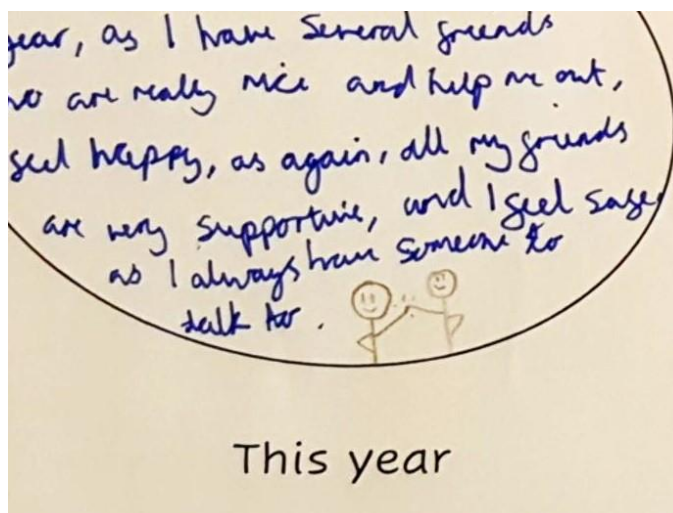 year, as I have several friends
who are really nice and help me out,
feel happy, as again, all my friends
are very supportive, and I feel safe,
as I always have someone to
talk to.
This year